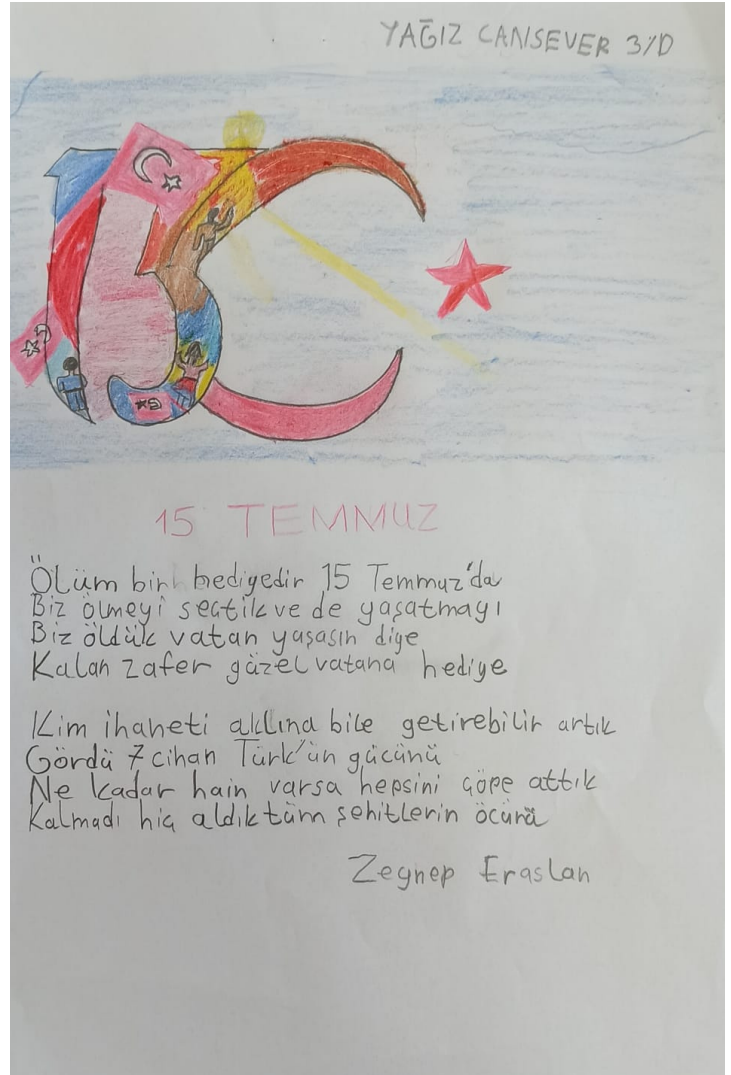 YAĞIZ CANSEVER 3/D
15 TEMMUZ
Ölüm bir hediyedir 15 Temmuz'da
Biz ölmeyi seçtik ve de yaşatmayı
Biz öldük vatan yaşasın diye
Kalan zafer güzel vatana hediye
Kim ihaneti aklına bile getirebilir artık
Gördü 7 cihan Türk'ün gücünü
Ne kadar hain varsa hepsini çöpe attık
Kalmadı hiç aldık tüm şehitlerin öcünü
Zeynep Eraslan